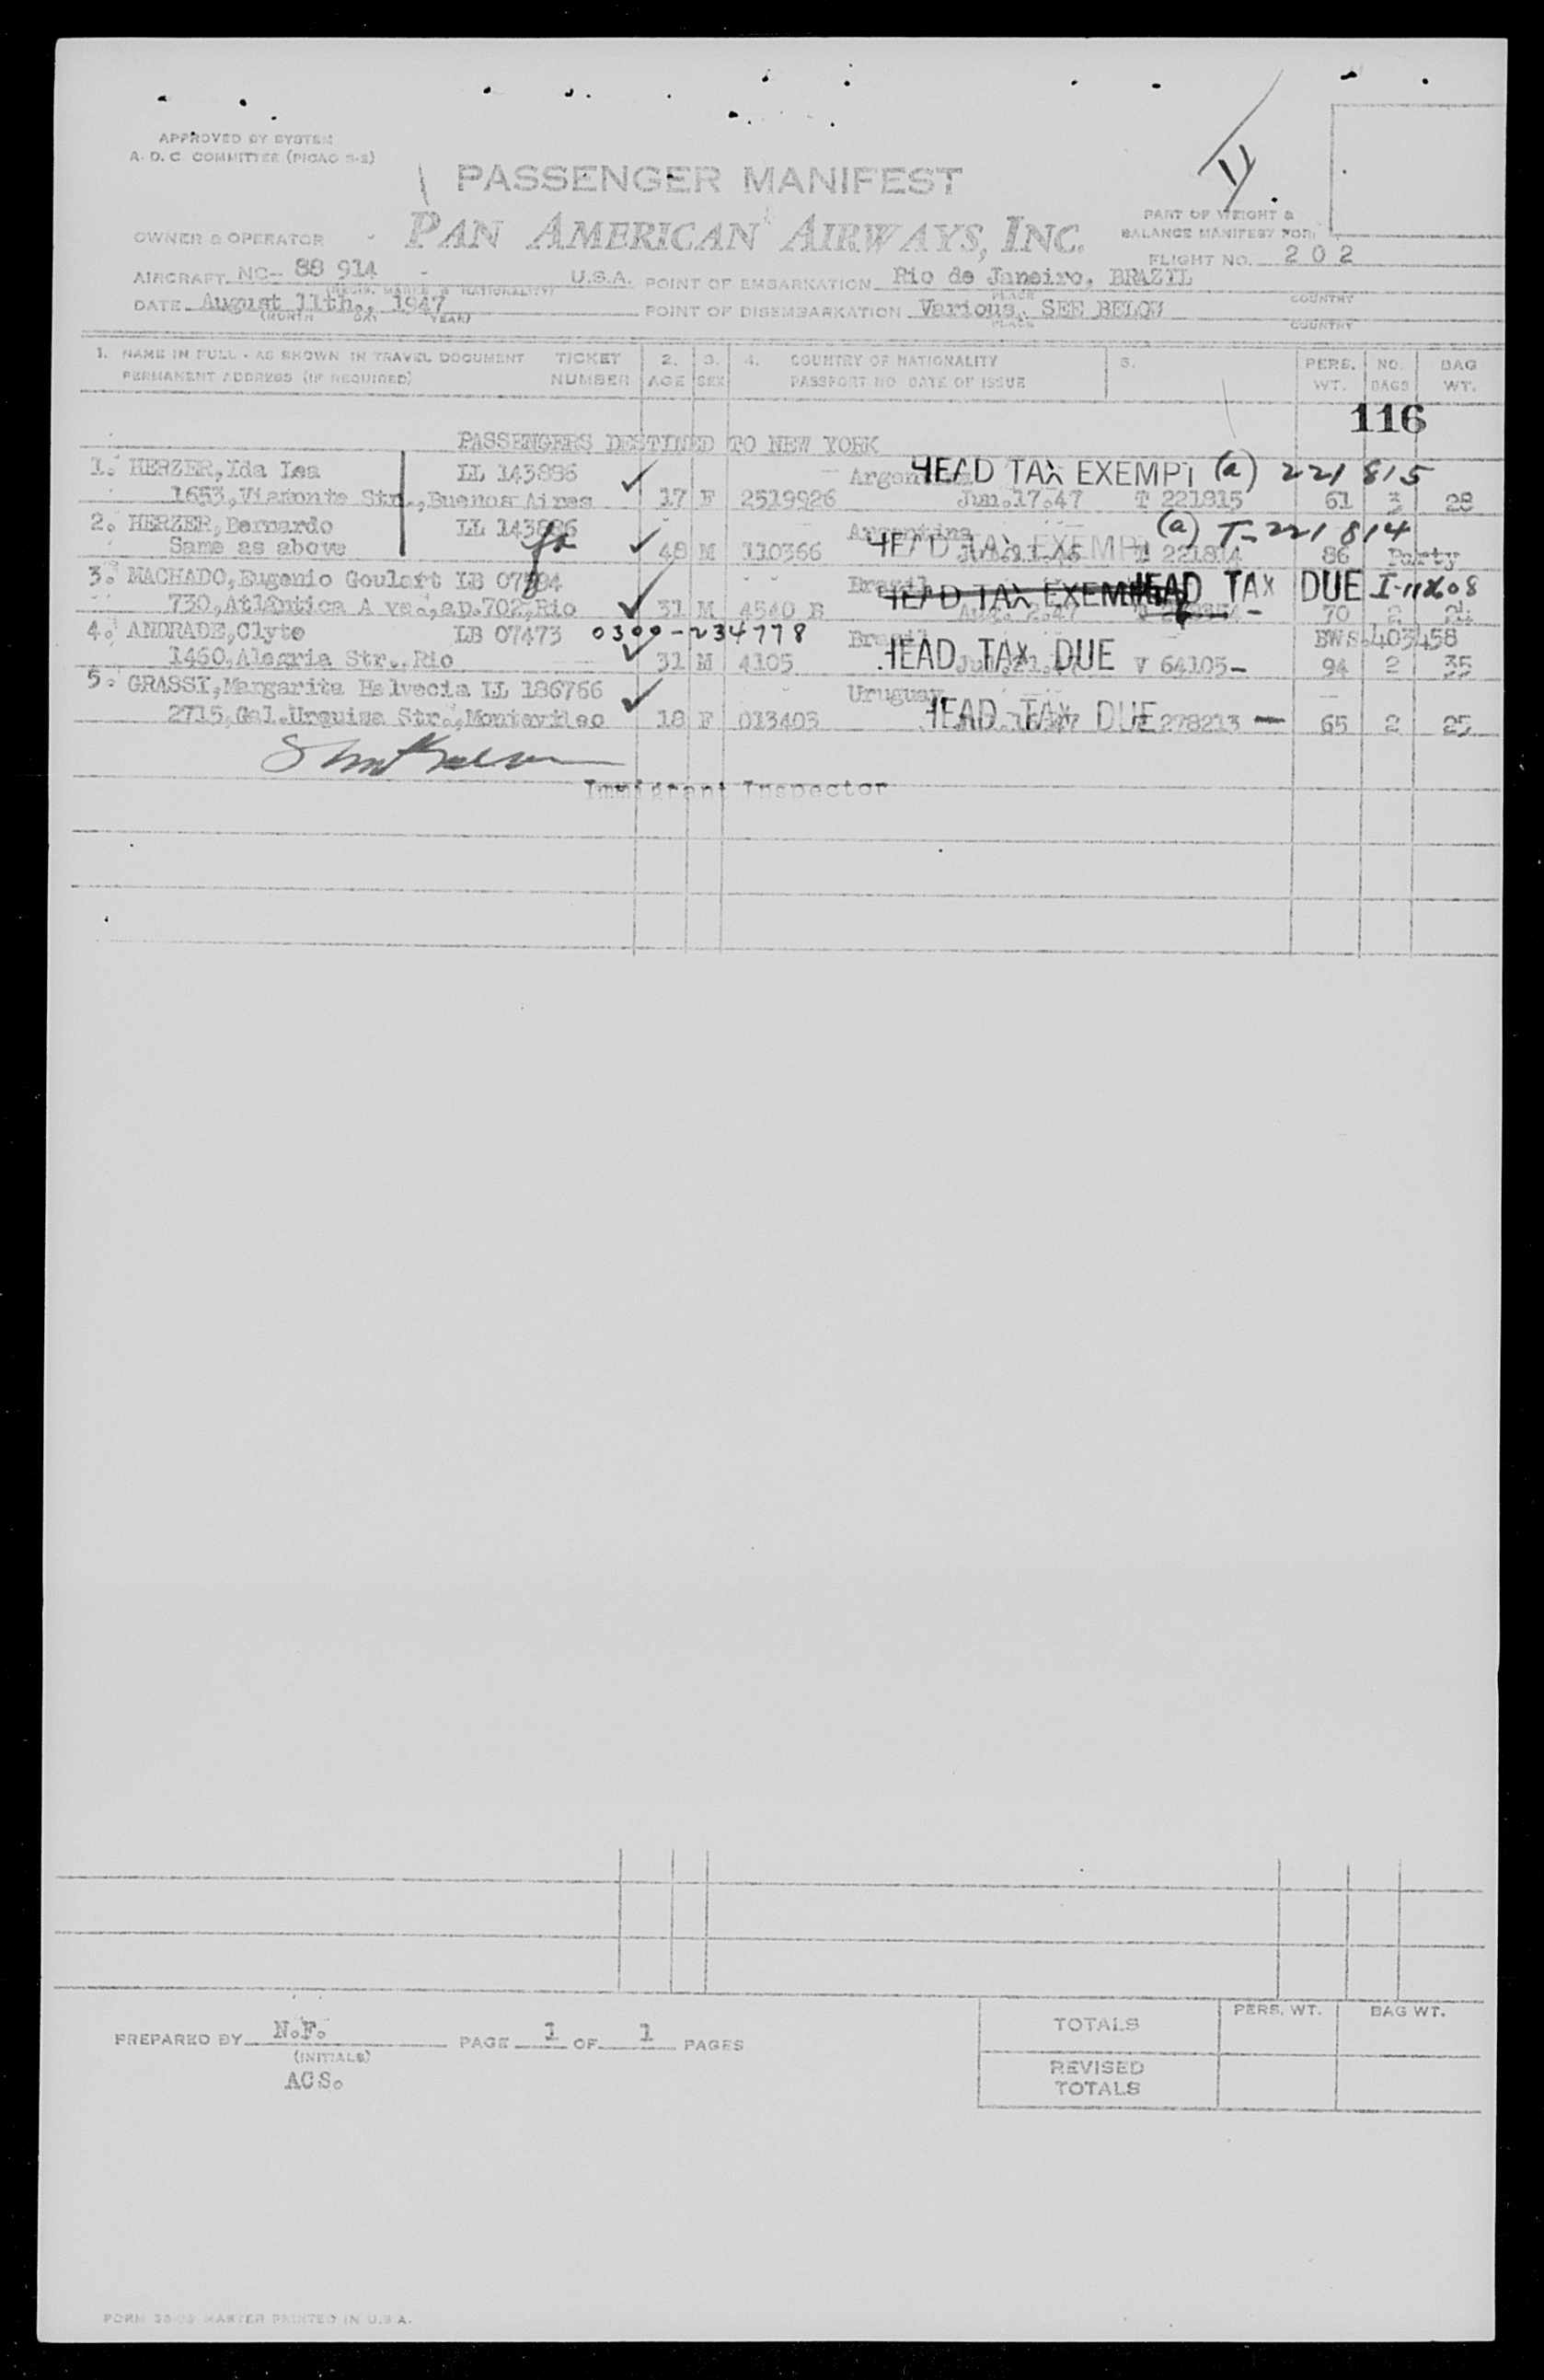 APPROVED BY SYSTEM
A. D. C. COMMITTEE (PICAO S-2)
PASSENGER MANIFEST
PAN AMERICAN AIRWAYS, INC.
PART OF WEIGHT &
BALANCE MANIFEST FOR:
OWNER & OPERATOR
FLIGHT NO. 2 0 2
AIRCRAFT NC- 88 914 - U.S.A. POINT OF EMBARKATION Rio de Janeiro, BRAZIL
(REGIS. MARKS & NATIONALITY) PLACE COUNTRY
DATE August 11th., 1947 POINT OF DISEMBARKATION Various, SEE BELOW
(MONTH DAY YEAR) PLACE COUNTRY
1. NAME IN FULL - AS SHOWN IN TRAVEL DOCUMENT TICKET 2. 3. 4. COUNTRY OF NATIONALITY 5. PERS. NO. BAG
PERMANENT ADDRESS (IF REQUIRED) NUMBER AGE SEX PASSPORT NO DATE OF ISSUE WT. BAGS WT.
116
PASSENGERS DESTINED TO NEW YORK
1. HERZER, Ida Lea LL 143886 Argentina HEAD TAX EXEMPT (a) 221 815
1653, Viamonte Str., Buenos Aires 17 F 2519926 Jun.17.47 T 221815 61 3 28
2. HERZER, Bernardo LL 143886 Argentina (a) T-221 814
Same as above 48 M 110366 HEAD TAX EXEMPT T 221814 86 Party
3. MACHADO, Eugenio Goulart LB 07594 Brazil HEAD TAX EXEMPT HEAD TAX DUE
730, Atlântica A ve., ap.702, Rio 31 M 4540 B 70 2 24
4. ANDRADE, Clyto LB 07473 0300-234778 Brazil BWS.403458
1460, Alegria Str., Rio 31 M 4105 HEAD TAX DUE V 64105- 94 2 35
5. GRASSI, Margarita Helvecia LL 186766 Uruguay
2715, Gal. Urquiza Str., Montevideo 18 F 013403 HEAD TAX DUE 278213 - 65 2 25
Immigrant Inspector
PREPARED BY N.F. PAGE 1 OF 1 PAGES
(INITIALS)
ACS.
TOTALS PERS. WT. BAG WT.
REVISED
TOTALS
MASTER PRINTED IN U.S.A.